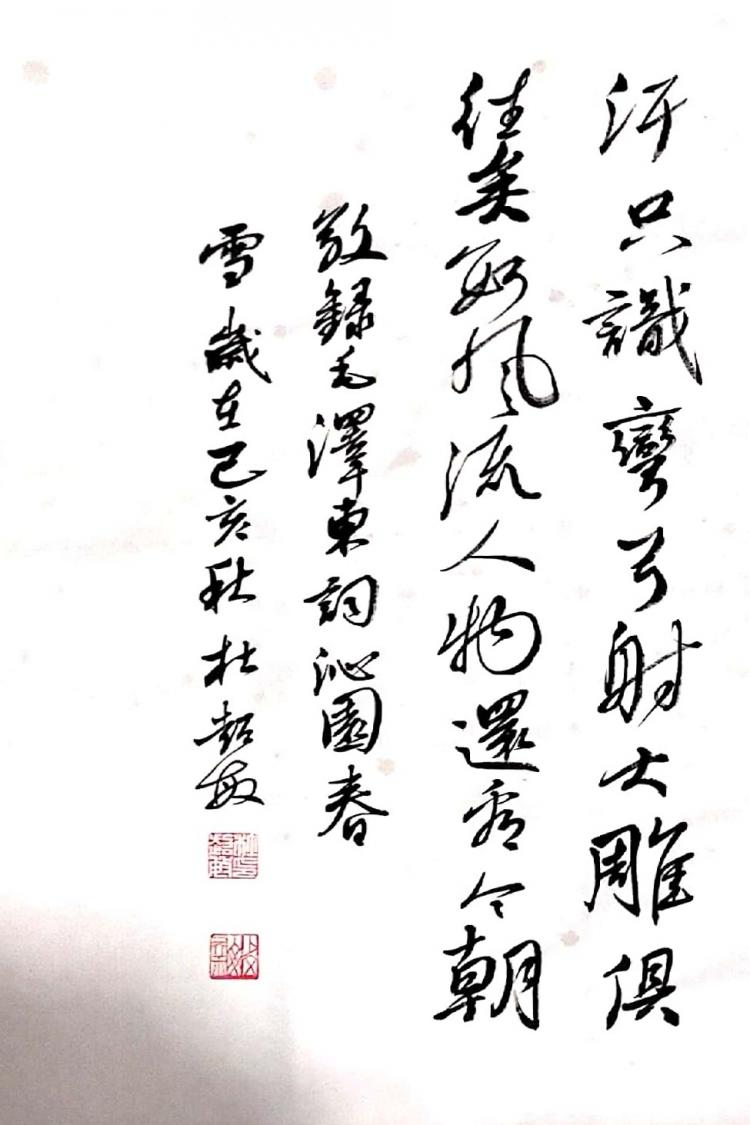 汗只識彎弓射大雕俱
往矣數風流人物還看今朝
敬錄毛澤東詞沁園春
雪歲在己亥秋杜超敏